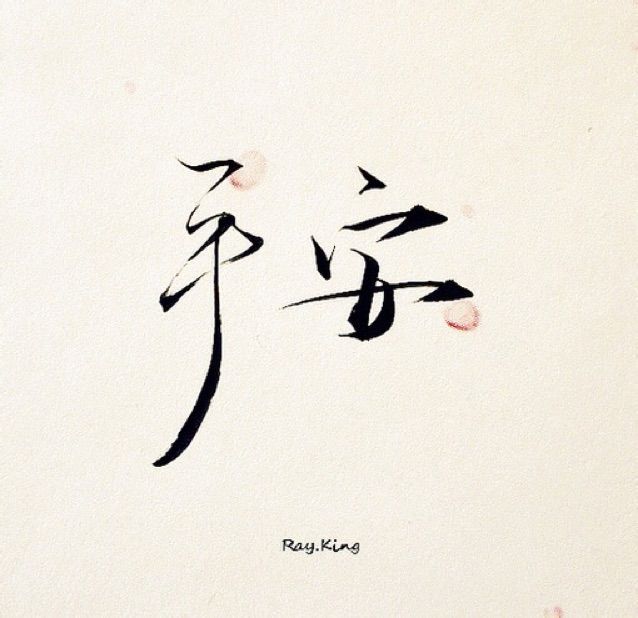 平安
Ray.King